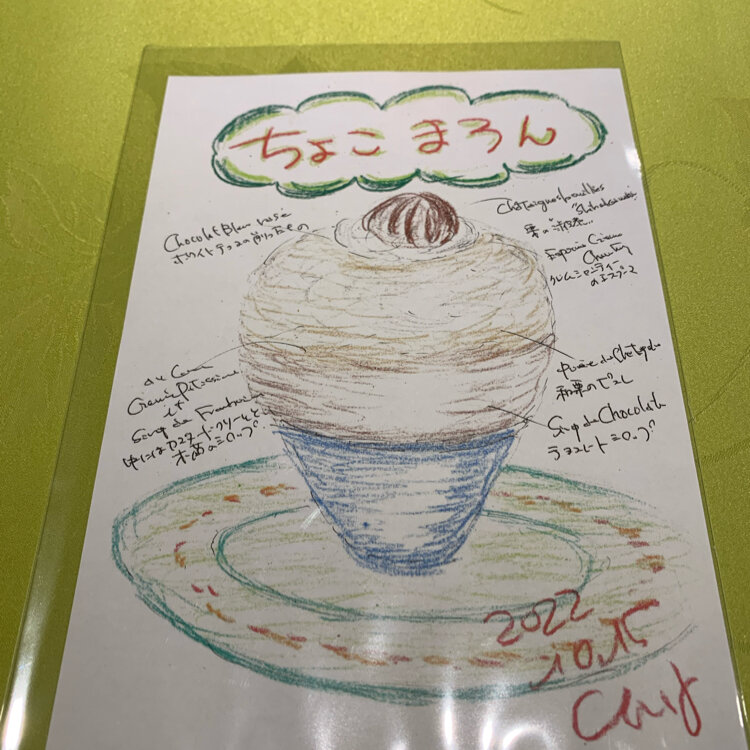 ちょこ まろん
Chocolat Blanc rasé
ホワイトチョコの削ったもの
栗の
Chantilly
クレムシャンティー
のエスプーマ
au Coeur
Crème Patissière
et
Sirop de Framboise
中にはカスタードクリームと
木苺のシロップ
Purée de Chataigne
和栗のピュレ
Sirop de Chocolat
チョコレートシロップ
2022
10.15
Chef